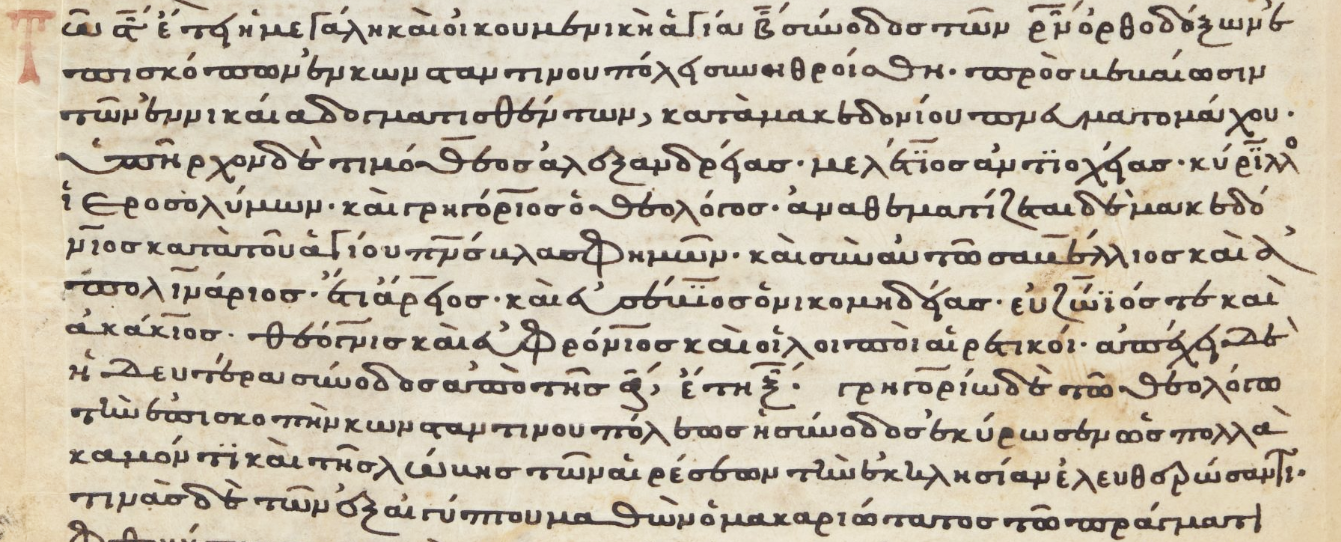 Τῶ α̅ ἔτει ἡ μεγάλη καὶ οἰκουμενικὴ ἁγία β̅ σύνοδος τῶν ρ̅ν̅ ὀρθοδόξων ἐ
πισκόπων ἐν κωνσταντινουπόλει συνηθροίσθη· πρὸς
τῶν ἐν νικαία δογματισθέντων, κατὰ μακεδονίου πνευματομάχου·
ὑπῆρχον δὲ τιμόθεος ἀλεξανδρείας· μελέτϊος ἀντϊοχείας· κύρϊλλο
ἱεροσολύμων· καὶ γρηγόριος ὁ θεολόγος· ἀναθεματίζεται δὲ μακεδό
νιος κατὰ τοῦ ἁγίου πν̅ς βλασφημῶν· καὶ σὺν αὐτῶ σαβέλλιος καὶ ἀ
πολινάριος· ἔτι ἄρειος· καὶ εὐσέβϊος ὁ νικομηδείας· εὐζώϊός τε καὶ
ἀκάκιος· θεόγνις καὶ εὐφρόνιος καὶ οἱ λοιποὶ αἱρετικοί· ἀπέχει δὲ
ἡ δευτέρα σύνοδος ἀπὸ τῆς α̅, ἔτη ξ̅· γρηγορίω δὲ τῶ θεολόγω
τὴν ἐπισκοπὴν κωνσταντινουπόλεως ἡ σύνοδος ἐκύρωσεν ὡς πολλὰ
καμόντϊ καὶ τῆς λώβης τῶν αἱρέσεων τὴν ἐκκλησίαν ἐλευθερώσαντι·
τινὰς δὲ τῶν ἐξ αἰγύπτου μαθὼν ὁ μακαριώτατος τῶ πράγματι